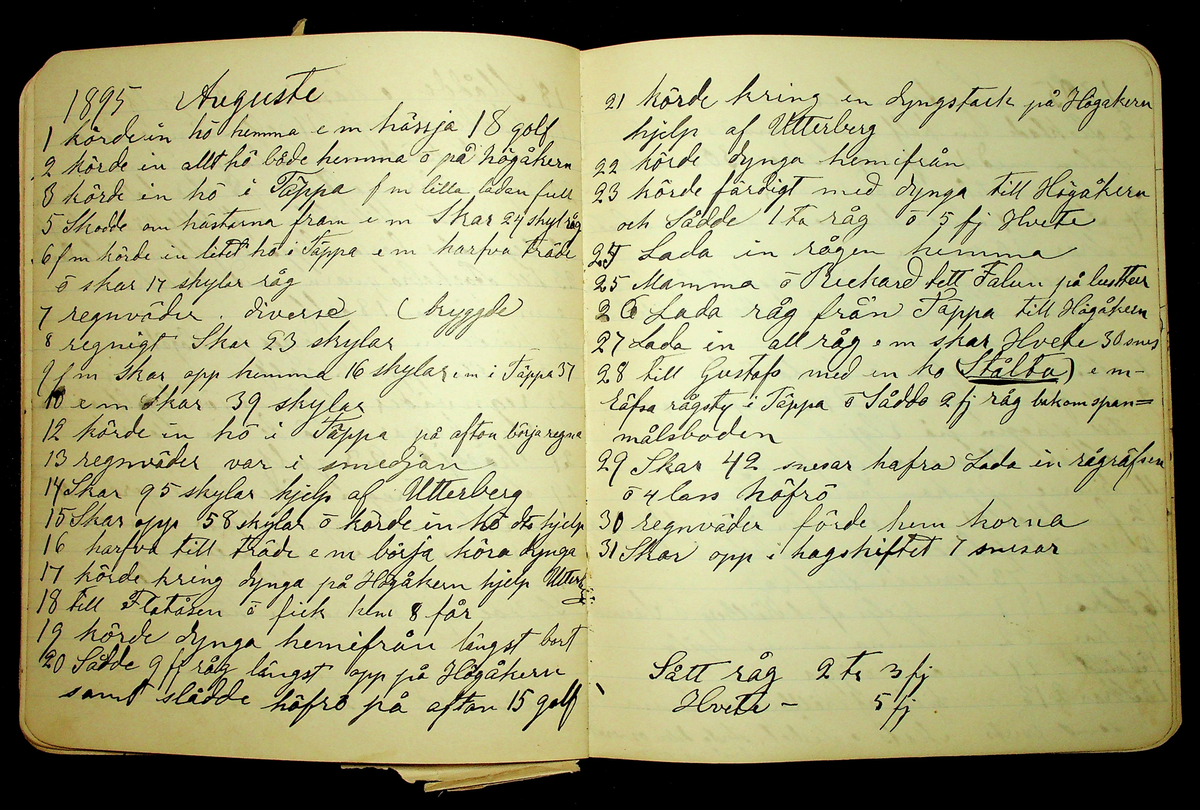 1895 Auguste
1 körde in hö hemma e m hässja 18 golf
2 körde in allt hö både hemma o på högåkern
3 körde in hö i Täppa f m lilla ladan full
5 Skodde om hästarna fram e m Skar 24 skyl råg
6 f m körde in litet hö i Täppa e m harfva träde
o skar 17 skylar råg
7 regnväder . diverse (bryggde
8 regnigt Skar 23 skylar
9 f m Skar opp hemma 16 skylar e m i Täppa 37
10 e m Skar 39 skylar
12 körde in hö i Täppa på afton börja regna
13 regnväder var i smedjan
14 Skar 95 skylar hjelp af Utterberg
15 Skar opp 58 skylar o körde in hö dto hjelp
16 harfva till träde e m börja köra dynga
17 körde kring dynga på Högåkern hjelp Utterbg
18 till Flatåsen o fick hem 8 får
19 körde dynga hemifrån längst bort
20 Sådde 9 fj råg längst opp på Högåkern
samt slådde höfrö på afton 15 golf
21 körde kring en dyngstack på Högåkern
hjelp af Utterberg
22 körde dynga hemifrån
23 körde färdigt med dynga till Högåkern
och Sådde 1 ta råg o 5 fj Hvete
24 Lada in rågen hemma
25 Mamma o Rickard tell Falun på lusttur
26 Lada råg från Täppa till Högåkern
27 Lada in all råg e m skar Hvete 30 snes
28 till Gustafs med en ko (Stålta) e m-
Räfsa rågsty i Täppa o Sådde 2 fj råg bakom span=
målsboden
29 Skar 42 snesar hafra Lada in rågräfsen
o 4 lass höfrö
30 regnväder förde hem korna
31 Skar opp i hagskiftet 7 snesar
Sått råg 2 ta 3 fj
Hvete - 5 fj